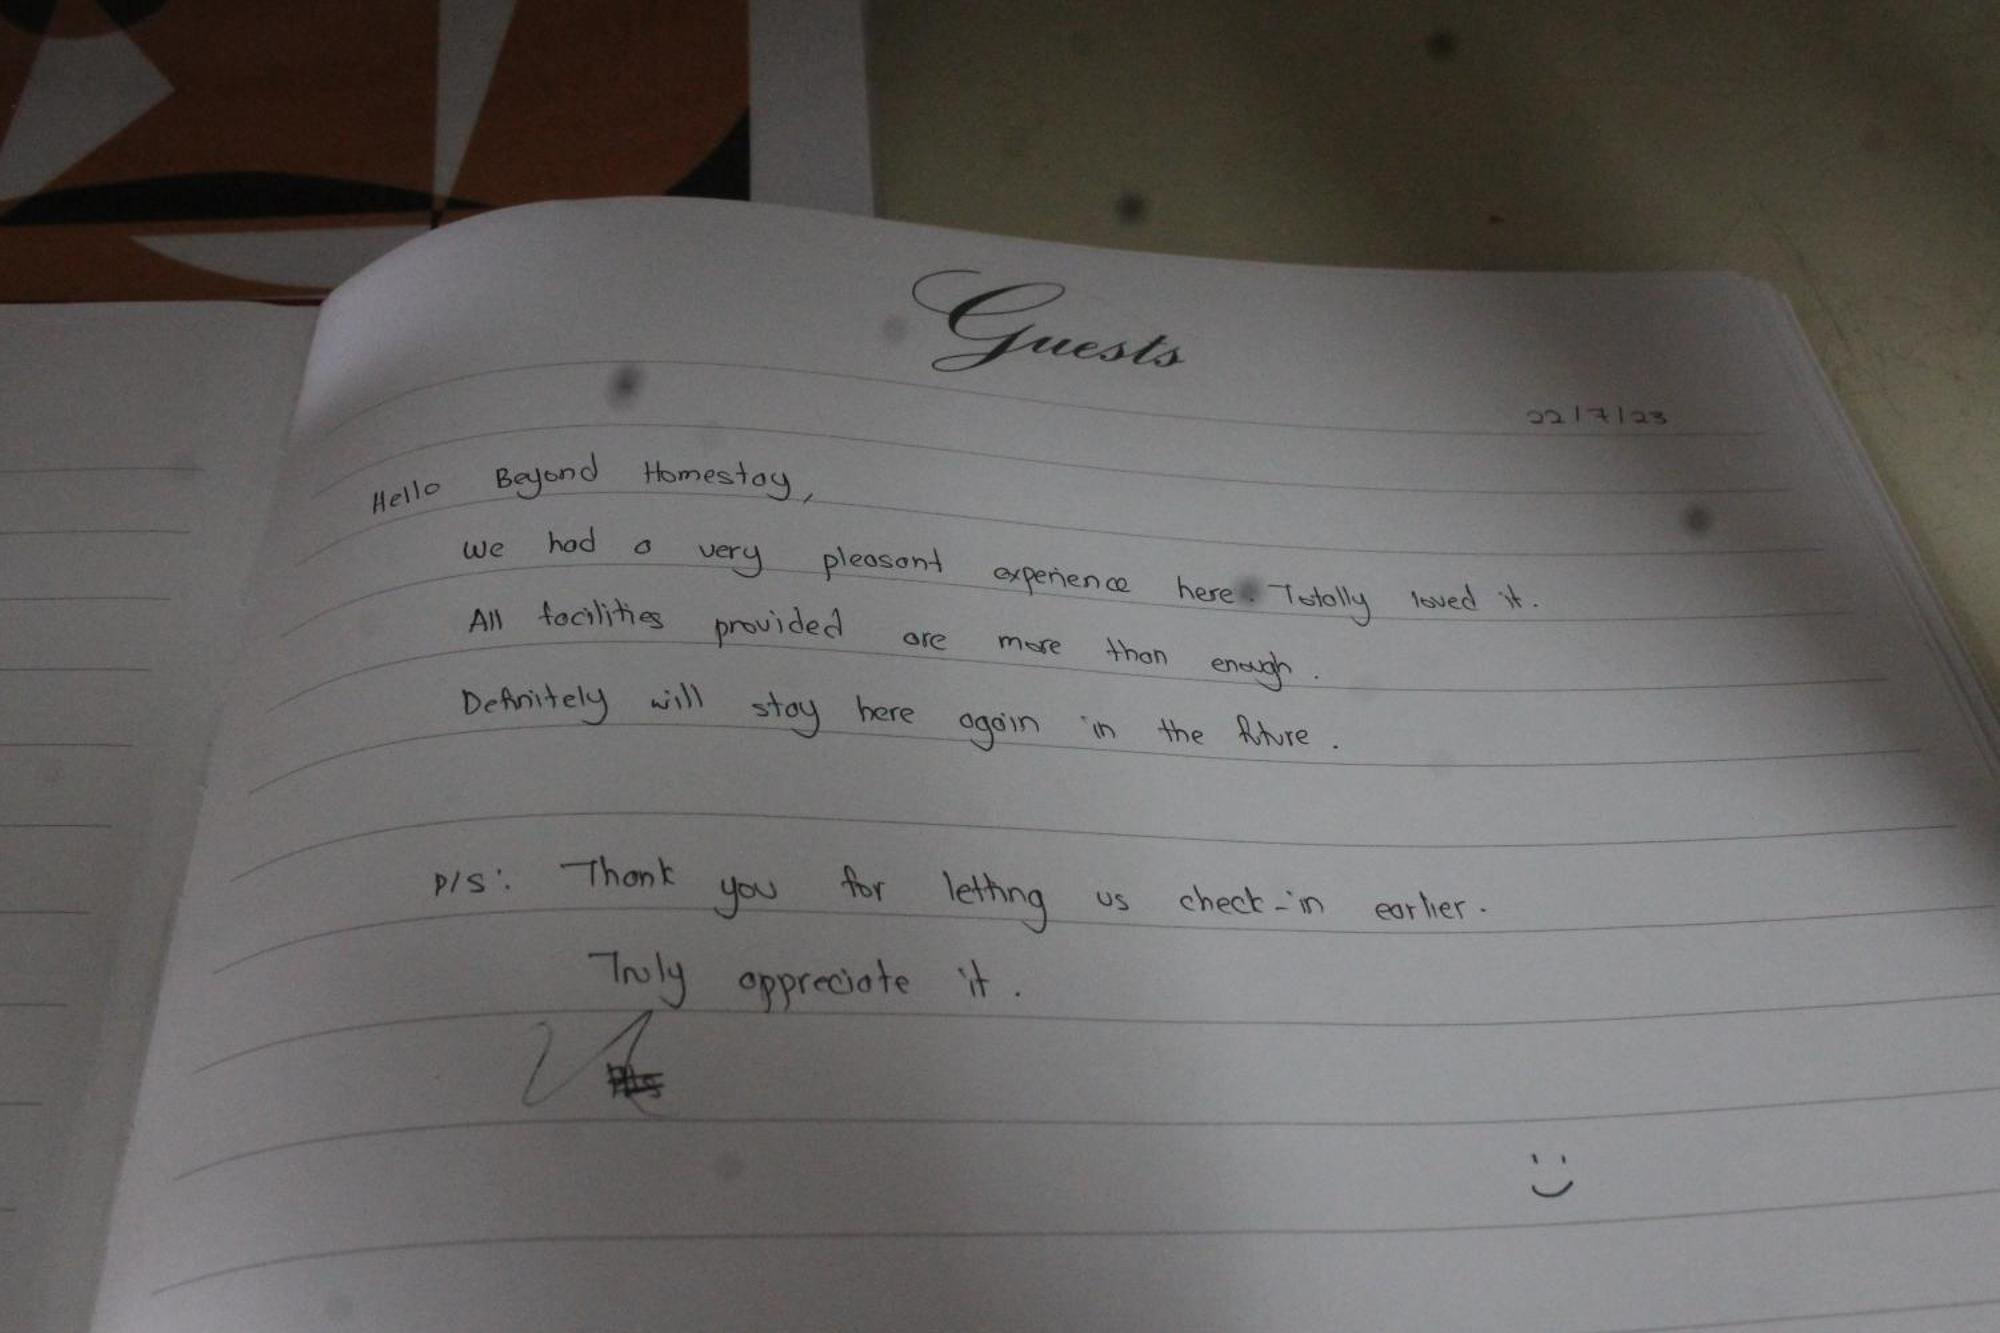 Guests
22/7/23
Hello Beyond Homestay,
We had a very pleasant experience here. Totally loved it.
All facilities provided are more than enough.
Definitely will stay here again in the future.
P/S: Thank you for letting us check-in earlier.
Truly appreciate it.